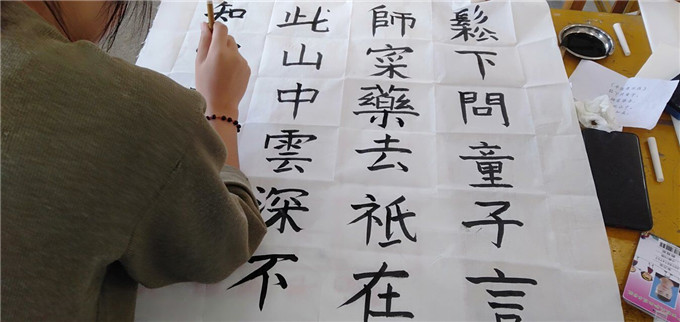 鬆下問童子言
師寀藥去祗在
此山中雲深不
知